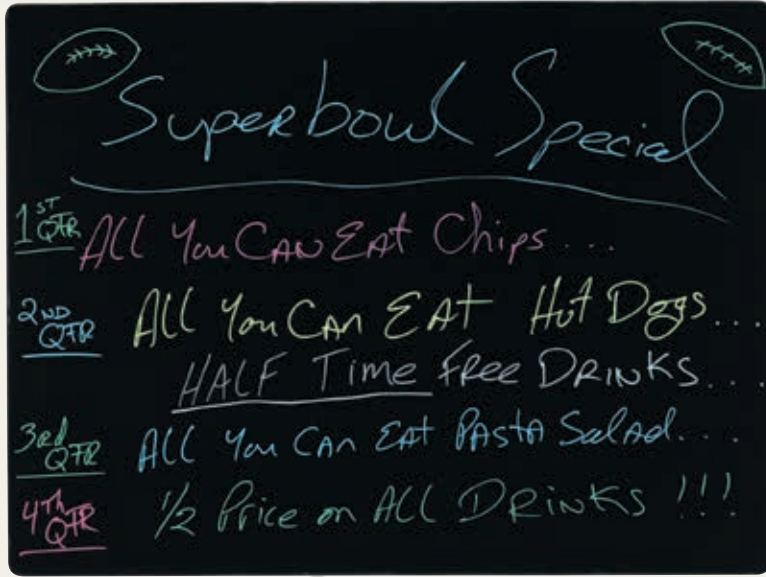 Superbowl Special
1ST QTR All You CAN EAt Chips...
2ND QTR All You CAN EAt Hot Dogs...
HALF Time Free DRINKS...
3rd QTR All You CAN EAt PAStA SalAd...
4Th QTR 1/2 Price on All DRiNKS !!!